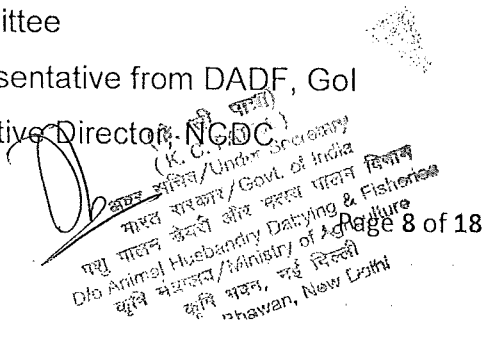 ittee
sentative from DADF, GoI
tive Director, NCDC
(K. C.
अवर सचिव/Under Secretary
भारत सरकार/Govt. of India
पशु पालन डेयरी और मत्स्य पालन विभाग
D/o Animal Husbandry Dairying & Fisheries
कृषि मंत्रालय/Ministry of Agriculture
कृषि भवन, नई दिल्ली
Bhawan, New Delhi
Page 8 of 18